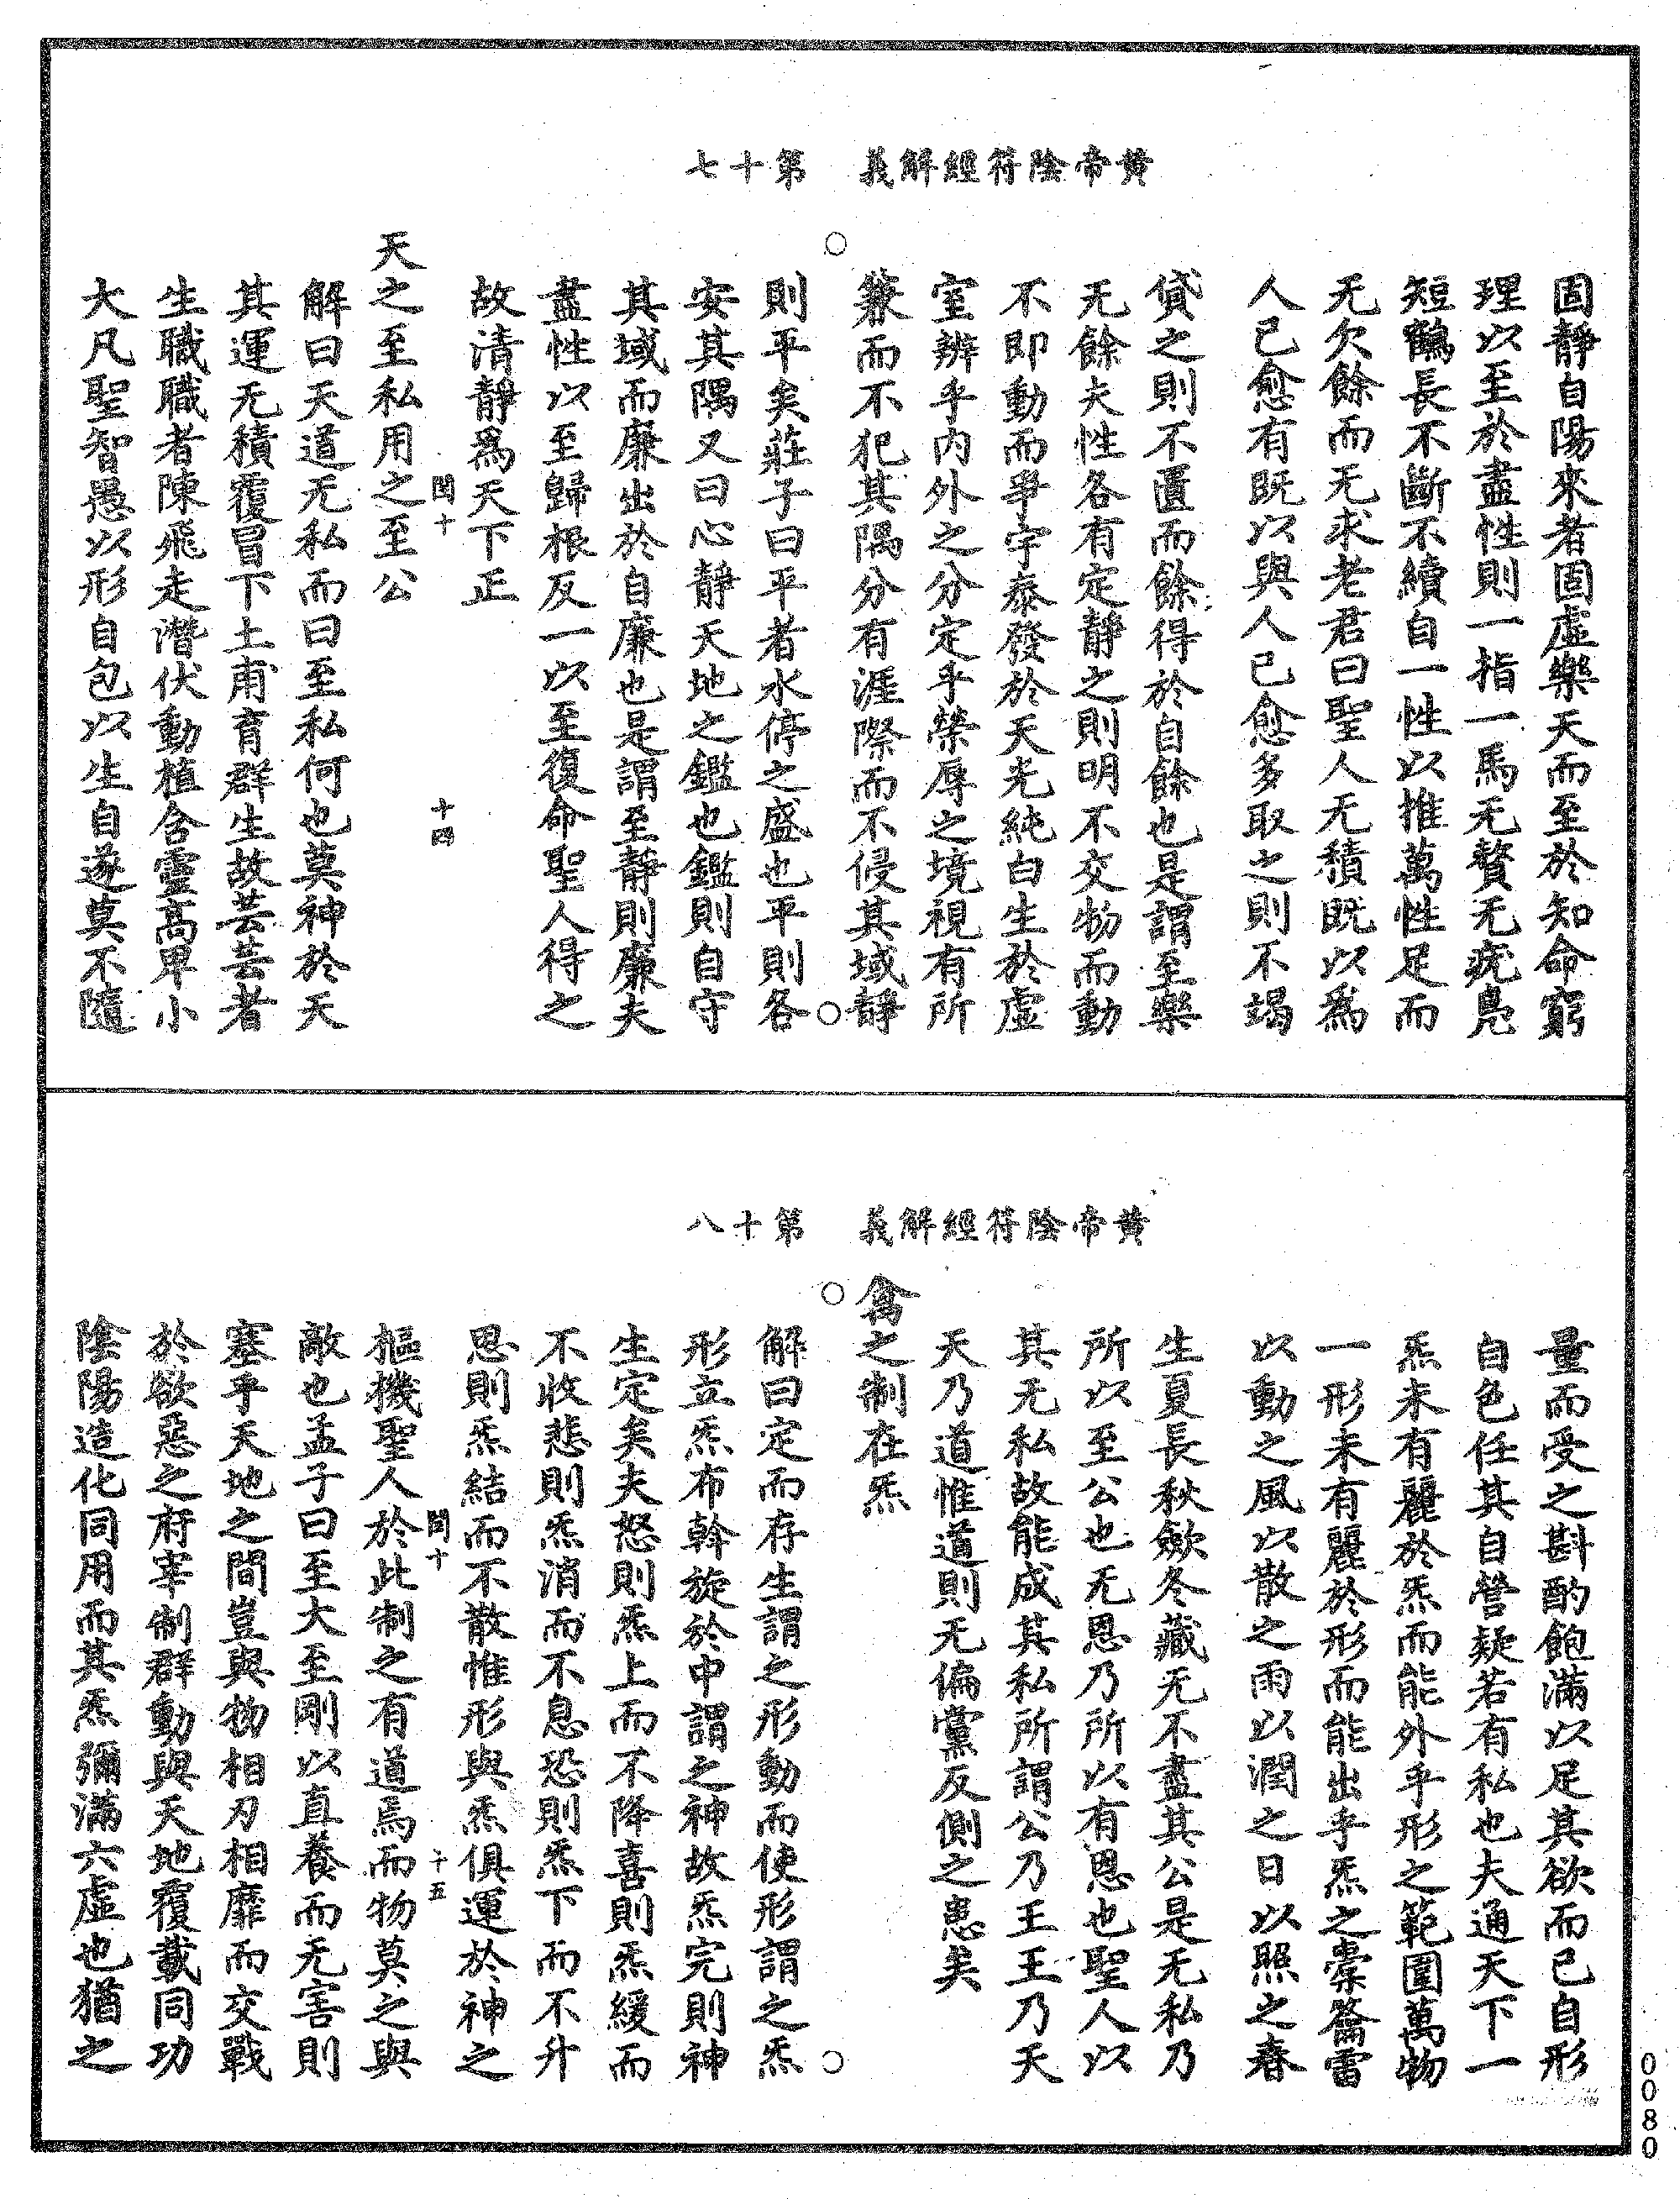 黃帝陰符經解義　第十七
固靜自陽來者固虛樂天而至於知命窮
理以至於盡性則一指一馬无贅无疣鳧
短鶴長不斷不續自一性以推萬性足而
无欠餘而无求老君曰聖人无積既以為
人已愈有既以與人已愈多取之則不竭
貸之則不匱而餘得於自餘也是謂至樂
无餘夫性各有定靜之則明不交物而動
不即動而爭宇泰發於天光純白生於虛
室辨乎內外之分定乎榮辱之境視有所
蔽而不犯其隅分有涯際而不侵其域靜
則平矣莊子曰平者水停之盛也平則各
安其隅又曰心靜天地之鑑也鑑則自守
其域而廉出於自廉也是謂至靜則廉夫
盡性以至歸根反一以至復命聖人得之
故清靜為天下正
閏十　十四
天之至私用之至公
解曰天道无私而曰至私何也莫神於天
其運无積覆冒下土甫育群生故芸芸者
生職職者陳飛走潛伏動植含靈高卑小
大凡聖智愚以形自包以生自遂莫不隨
黃帝陰符經解義　第十八
量而受之斟酌飽滿以足其欲而已自形
自色任其自營疑若有私也夫通天下一
炁未有麗於炁而能外乎形之範圍萬物
一形未有麗於形而能出乎炁之橐籥雷
以動之風以散之雨以潤之日以照之春
生夏長秋歛冬藏无不盡其公是无私乃
所以至公也无恩乃所以有恩也聖人以
其无私故能成其私所謂公乃王王乃天
天乃道惟道則无偏黨反側之患矣
禽之制在炁
解曰定而存生謂之形動而使形謂之炁
形立炁布斡旋於中謂之神故炁完則神
生定矣夫怒則炁上而不降喜則炁緩而
不收悲則炁消而不息恐則炁下而不升
恩則炁結而不散惟形與炁俱運於神之
閏十　十五
樞機聖人於此制之有道焉而物莫之與
敵也孟子曰至大至剛以直養而无害則
塞乎天地之間豈與物相刃相靡而交戰
於欲惡之府宰制群動與天地覆載同功
陰陽造化同用而其炁彌滿六虛也猶之
0080